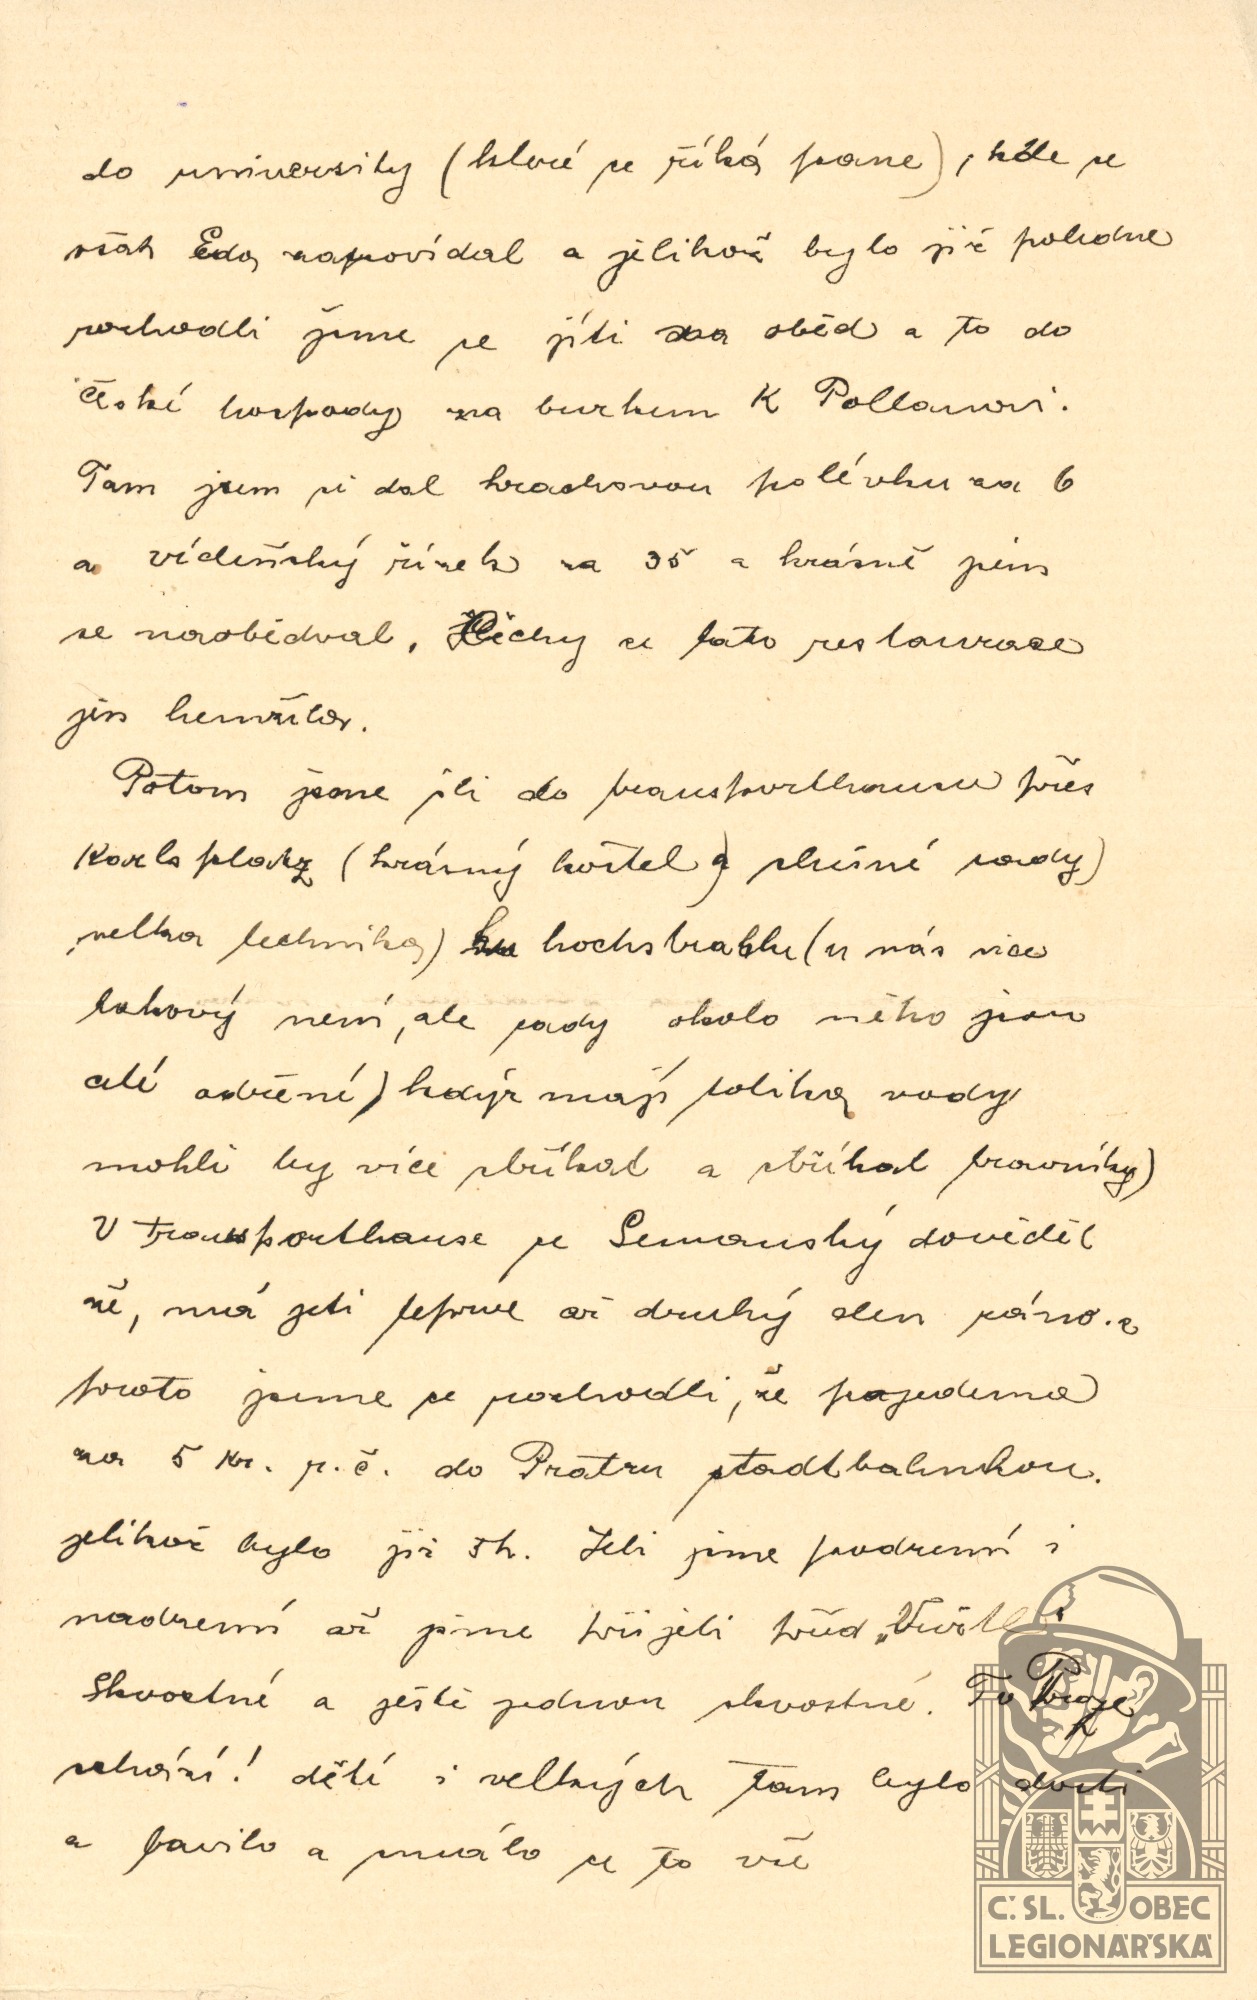 do university (které se říká pane), kde se
však Eda zapovídal a jelikož bylo již poledne
rozhodli jsme se jíti na oběd a to do
České hospody za burkem K Pollanovi.
Tam jsem si dal hrachovou polévku za 6
a vídeňský řízek za 35 a krásně jsem
se naobědval. Čechy se tato restaurace
jen hemžila.
Potom jsme šli do transporthausu přes
Karlsplatz (krásný kostel a slušné sady)
velka technika) hochstrahlu (u nás vice
takový není, ale sady okolo něho jsou
celé odřené) když mají tolika vody
mohli by více stříkat a stříhat travníky)
V Transporthause se Semanský dověděl
že, má jeti teprve až druhý den ráno. a
proto jsme se rozhodli, že pojedeme
za 5 Kr. r. č. do Pratru stadtbahnkou.
jelikož bylo již 3h. Jeli jsme podzemí i
nadzemí až jsme přijeli před „Vurštl"
Skvostné a ještě jednou skvostné. To Praze
schází! dětí i velkých tam bylo dosti
a bavilo a smálo se to vše
Č. SL. OBEC
LEGIONÁŘSKÁ